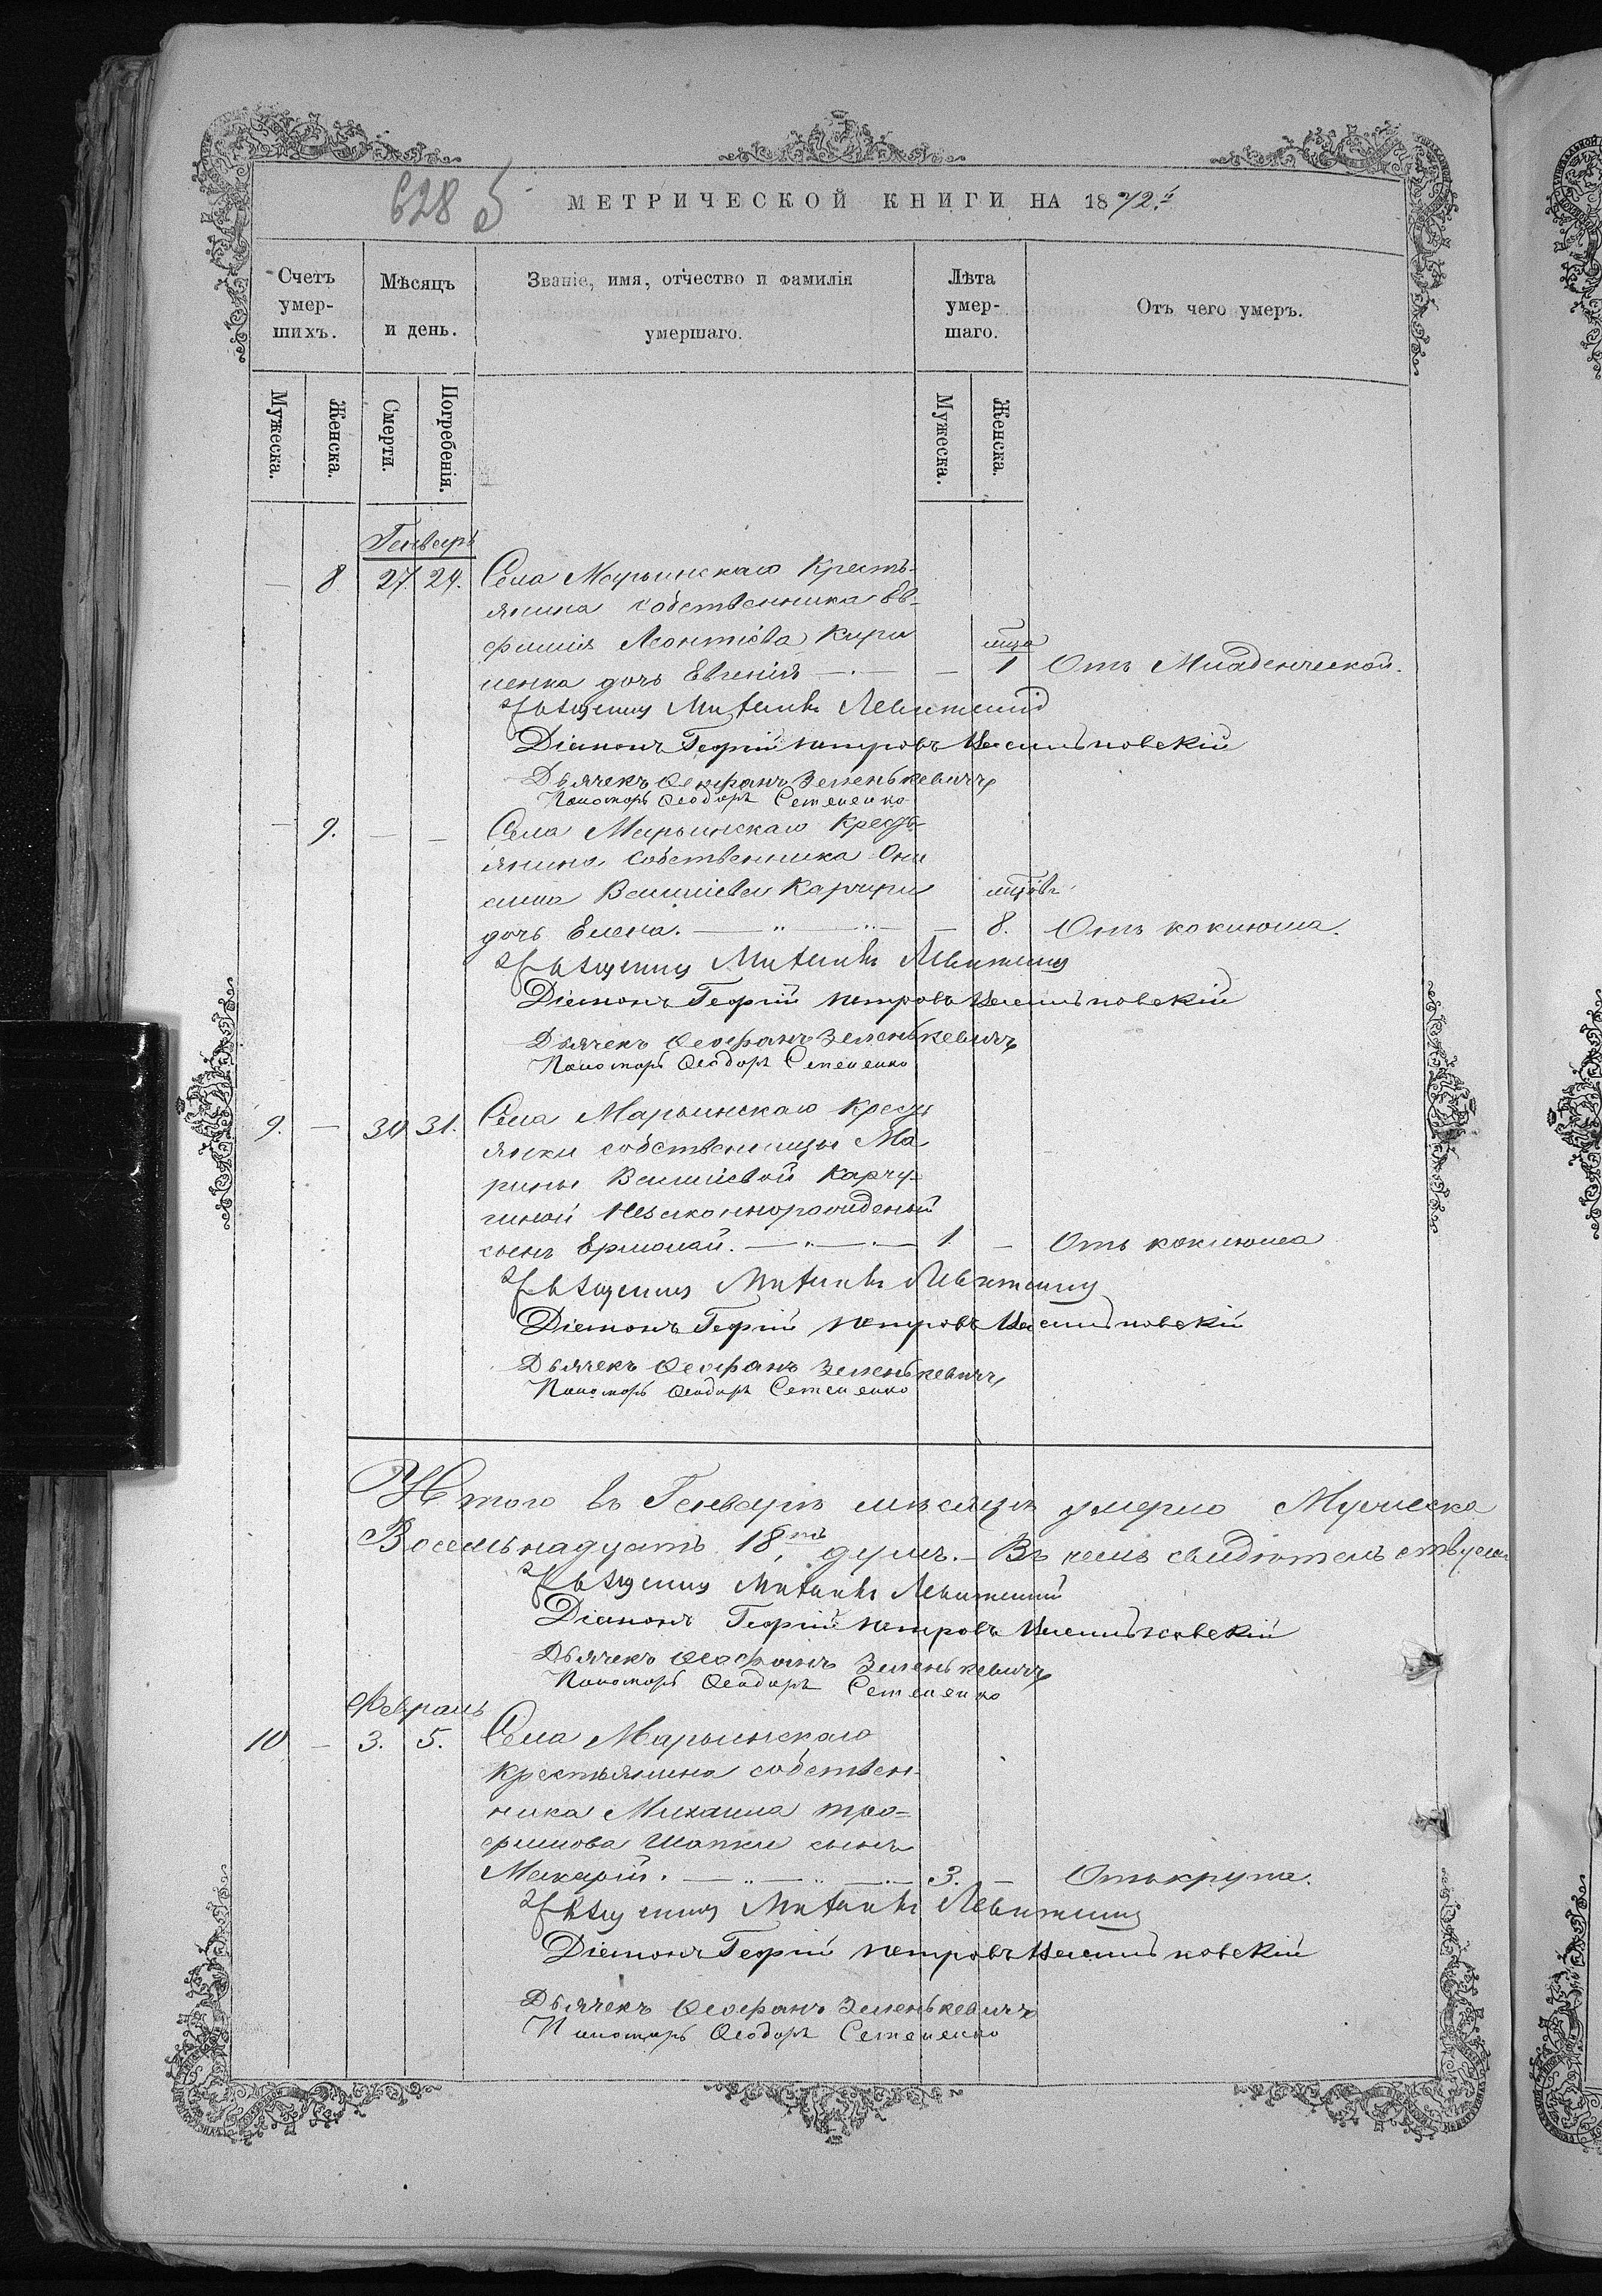 628 б
МЕТРИЧЕСКОЙ КНИГИ НА 1872.й
Счетъ умер-шихъ.
Мѣсяцъ и день.
Званіе, имя, отчество и фамилія умершаго.
Лѣта умер-шаго.
Отъ чего умеръ.
Мужеска.
Женска.
Смерти.
Погребенія.
Мужеска.
Женска.
Генварь
— 8. 27. 29. Села Марьинскаго Кресть-
янина собственника Ев-
фимія Леонтіева Кири
ленка дочь Евгенія — — 1 Отъ Младенческой.
Священникъ Митрофанъ Левитскій
Діаконъ Георгій Петровъ
Дьячекъ Ѳеофанъ Зеленькевичъ
Пономарь Ѳеодоръ Семененко
— 9. — — Села Марьинскаго Кресть-
янина Собственника Они
сима Василіева Карчуги мцовъ
дочь Елена. — — 8. Отъ коклюша.
Священникъ Митрофанъ Левитскій
Діаконъ Георгій Петровъ
Дьячекъ Ѳеофанъ Зеленькевичъ
Пономарь Ѳеодоръ Семененко
9. — 30. 31. Села Марьинскаго Кресть
янки собственницы Ма
рины Василіевой Карчу-
гиной Незаконнорожденый
сынъ Ермолай. — 1. — Отъ коклюша
Священникъ Митрофанъ Левитскій
Діаконъ Георгій Петровъ
Дьячекъ Ѳеофанъ Зеленькевичъ
Пономарь Ѳеодоръ Семененко
Итого въ Генварѣ мѣсяцѣ умерло Мужеска
Восемьнадцать 18ть душъ. — Въ чемъ свидѣтельствуемъ
Священникъ Митрофанъ Левитскій
Діаконъ Георгій Петровъ
Дьячекъ Ѳеофанъ Зеленькевичъ
Пономарь Ѳеодоръ Семененко
Февраль
10 — 3. 5. Села Марьинскаго
Крестьянина собствен-
ника Михаила Тро-
фимова Шапки сынъ
Макарій. — 3. — Отъ крупа.
Священникъ Митрофанъ Левитскій
Діаконъ Георгій Петровъ
Дьячекъ Ѳеофанъ Зеленькевичъ
Пономарь Ѳеодоръ Семененко